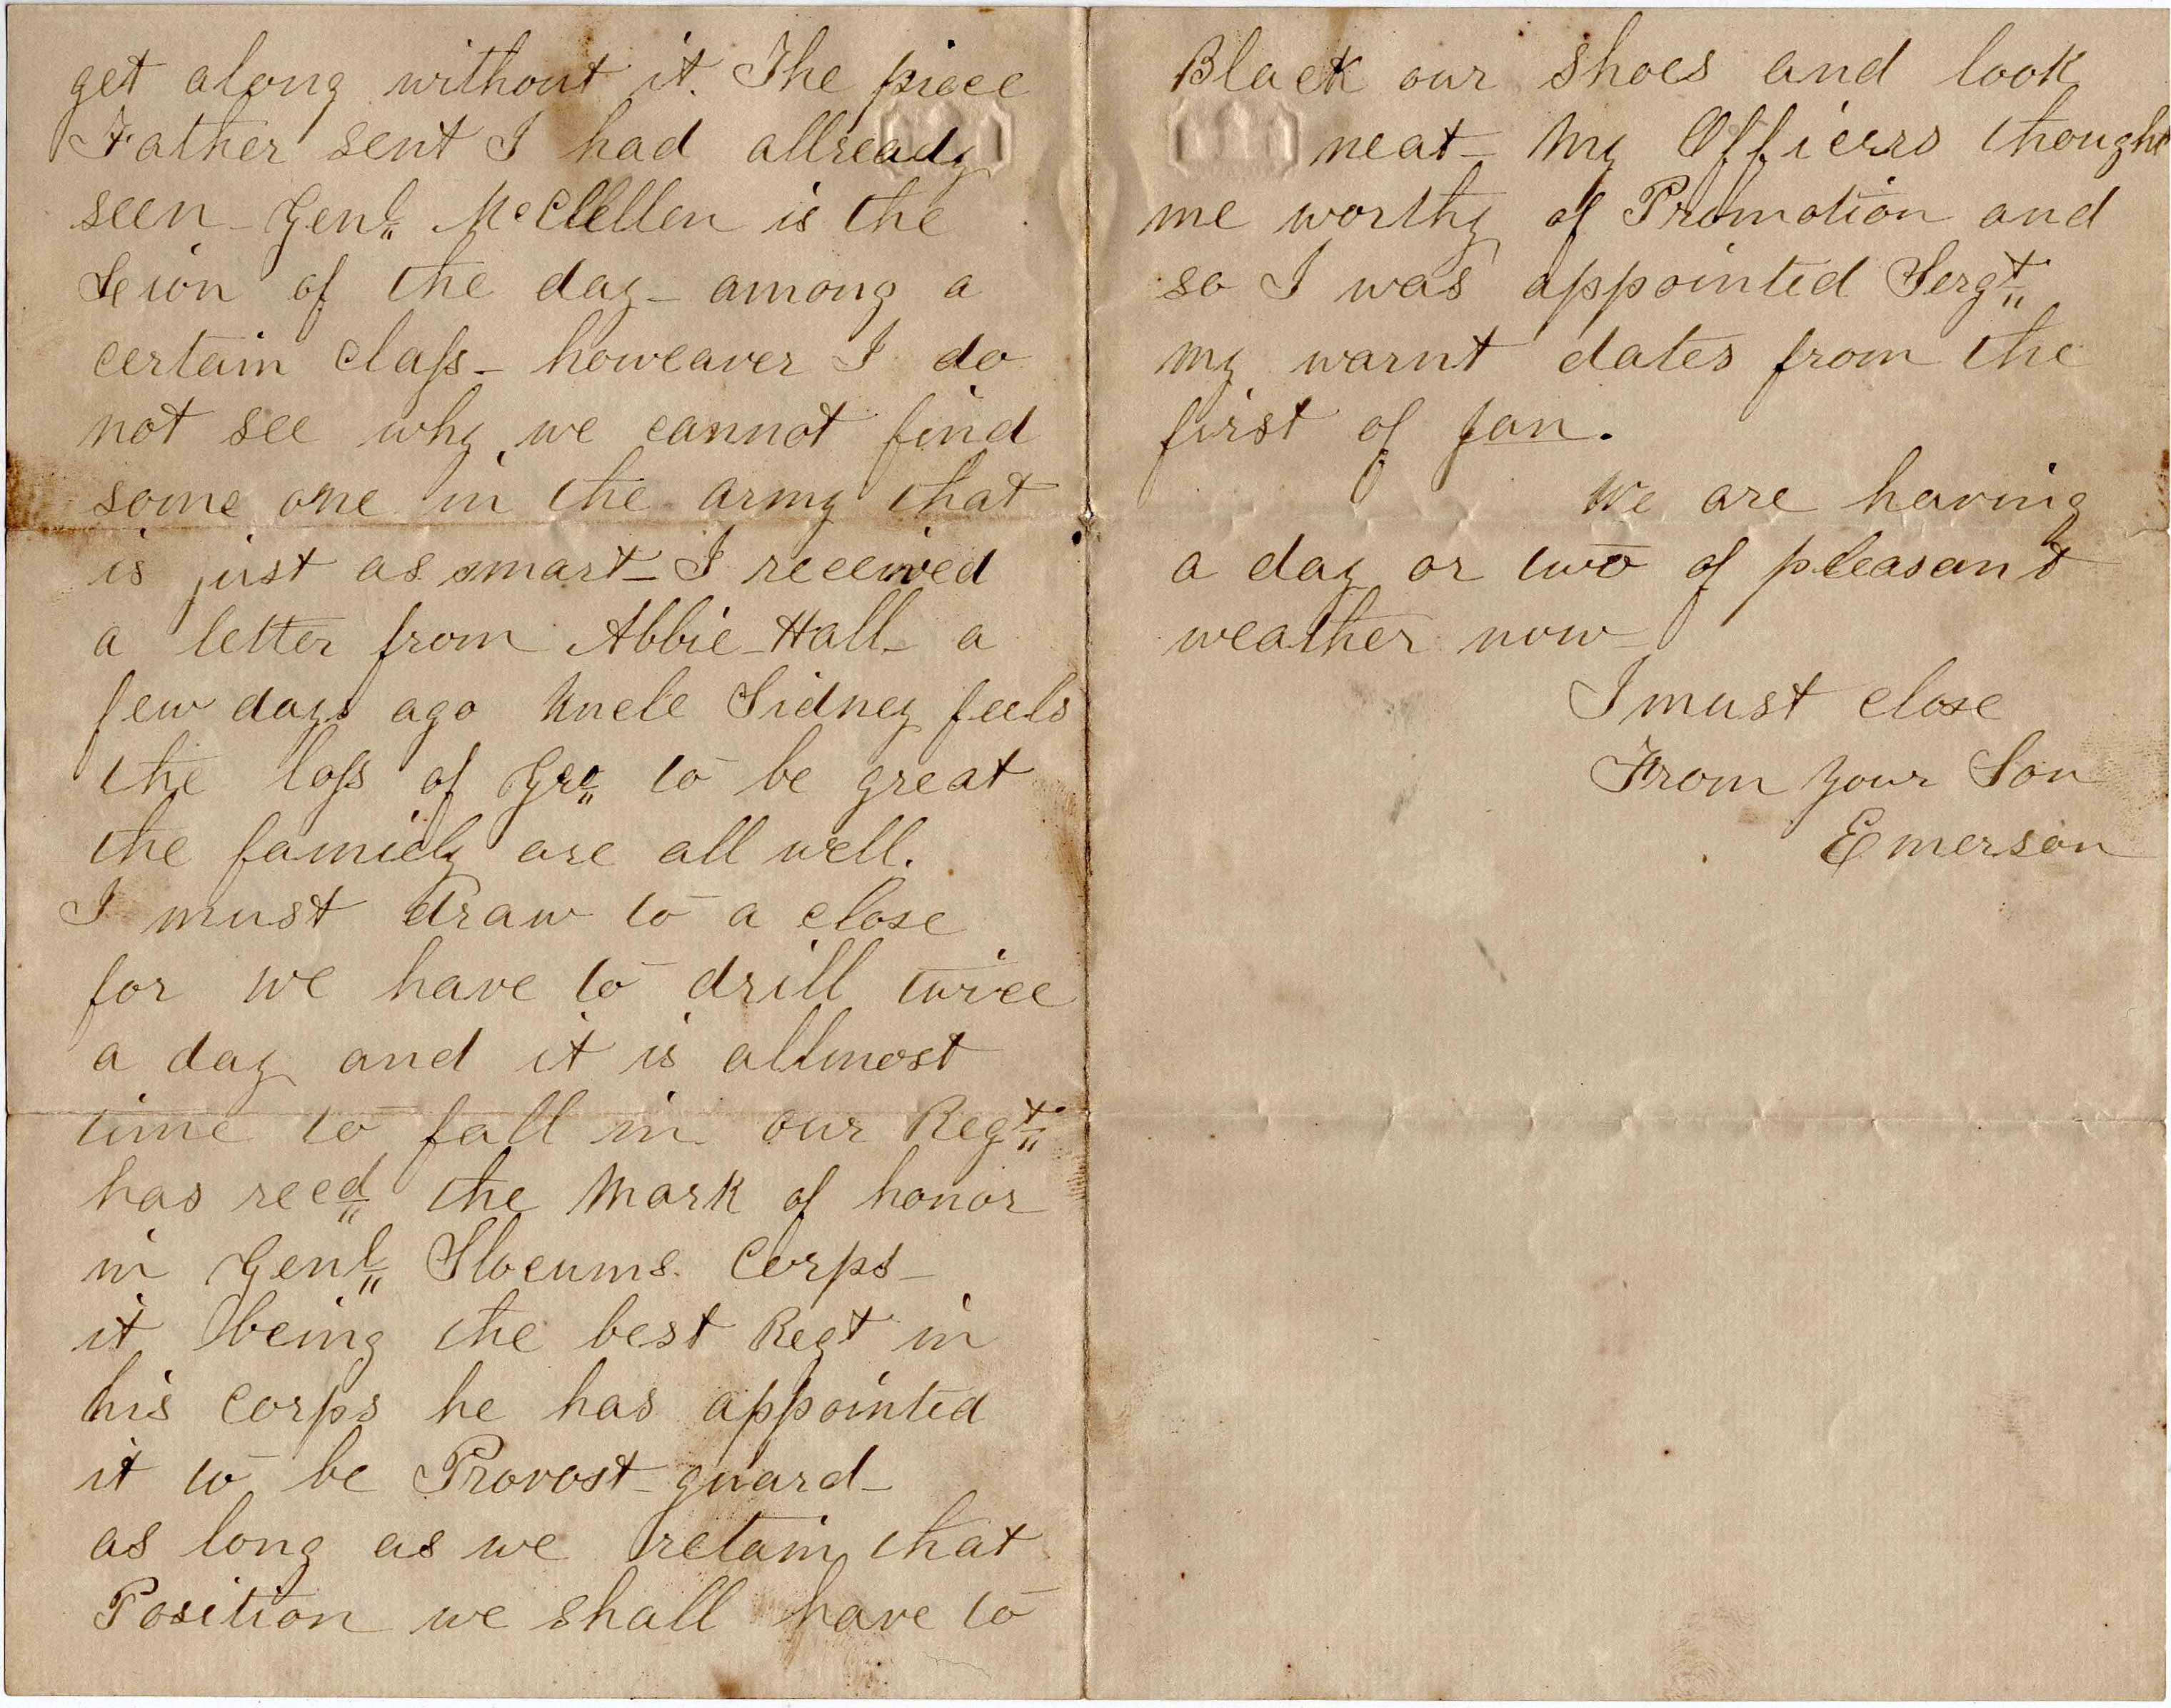 get along without it. The piece
Father sent I had allready
seen - Genl. McClellen is the
of the day - among a
certain class - howeaver I do
not see why we cannot find
some one in the army that
is just as smart - I received
a letter from Abbie - Hall - a
few days ago Uncle Sidney feels
the loss of Geo to be great
the family are all well.
I must draw to a close
for we have to drill twice
a day and it is allmost
time to fall in our Regt
has recd the Mark of honor
in Genl Slocums. Corps -
it being the best Regt in
his corps he has appointed
it to be Provost - guard -
as long as we retain that
Position we shall have to
Black our shoes and look
neat - My Officers thought
me worthy of Promotion and
so I was appointed Sergt
my warnt dates from the
first of Jan.
We are having
a day or two of pleasant
weather now -
I must close
From your Son
Emerson